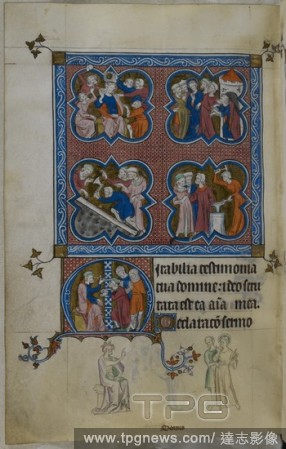 Mirabilia testimonia
tua domine: ideo scru
tata est ea aīa mea.
Declaratio sermo
TPG
www.tpgnews.com/ 達志影像